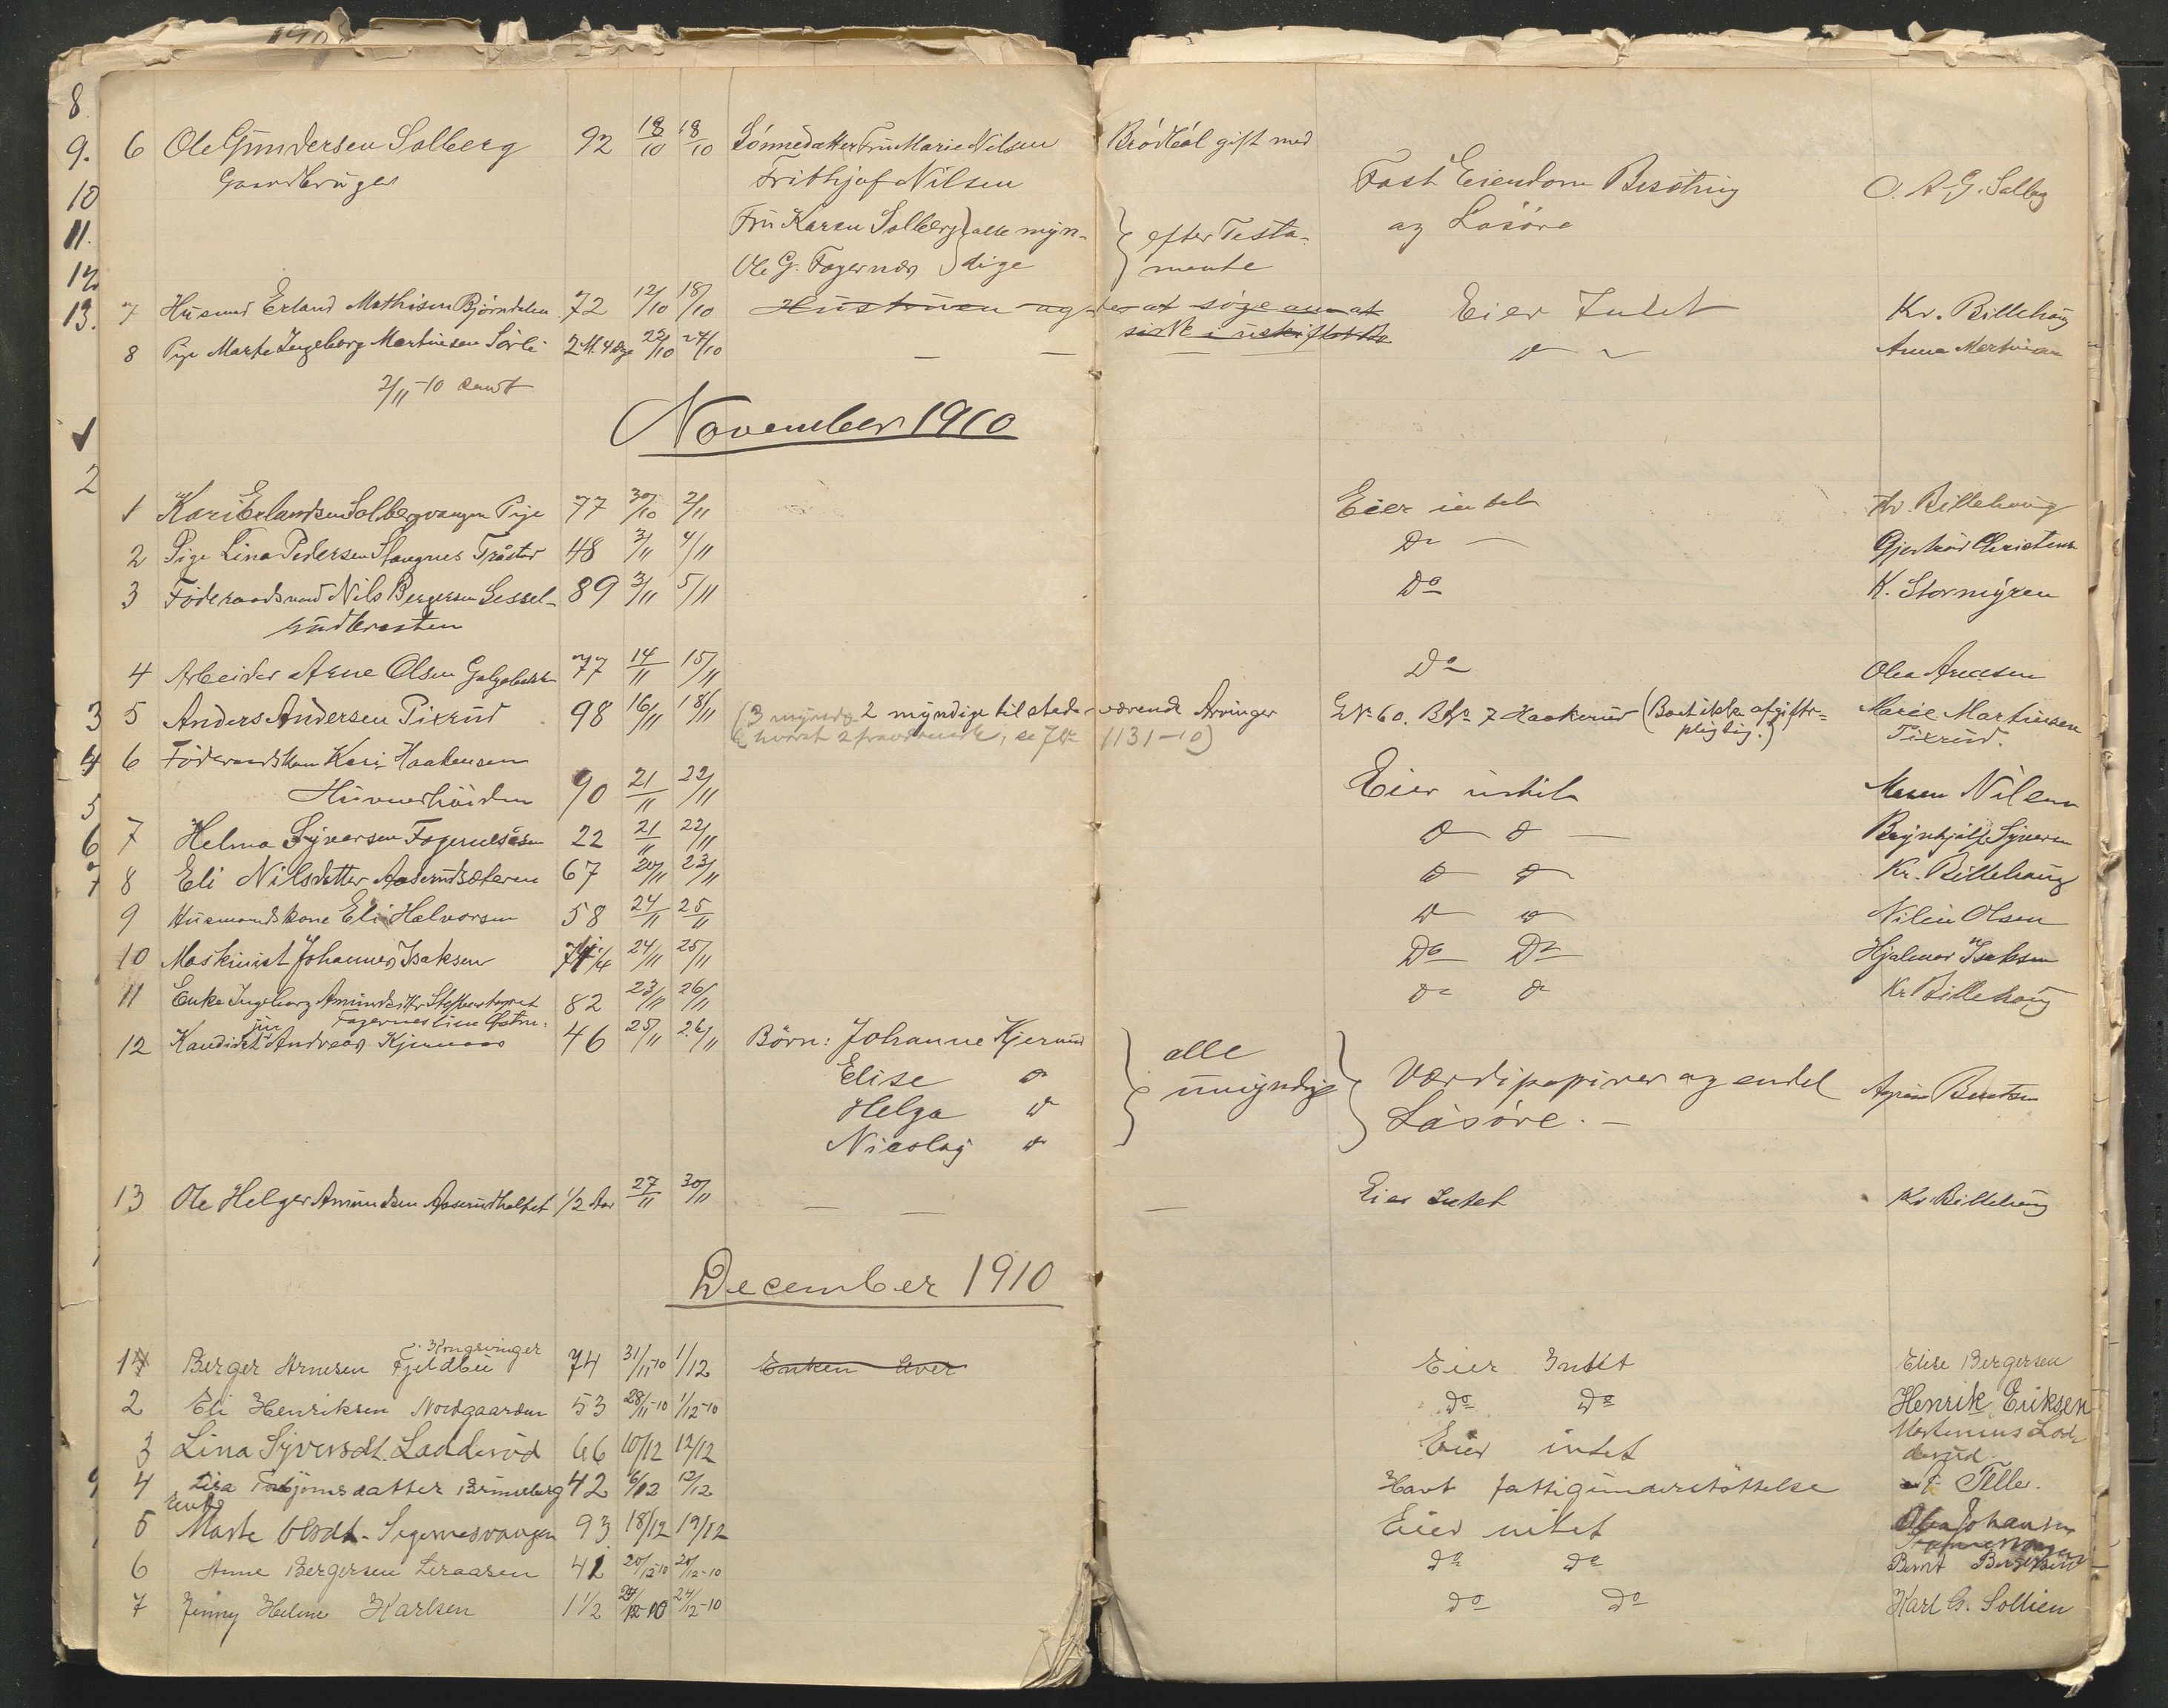 8
9.
10
11.
12
13.
6 Ole Gundersen Solberg 92 18/10 18/10 Sönnedatter Fru Marie Nilsen Brödböl gift med
Gaardbruger Frithjof Nilsen Fast Eiendom Besætning O. A. G. Solberg
Fru Karen Solberg } alle myn- } efter Testa- og Lösöre
Ole G. Fagernæs } dige } mente
7 Husmd Erland Mathisen Björndalen 72 12/10 18/10 Hustruen agter at söge om at Eier Intet Kr. Billehaug
sidde i uskiftet Bo
8 Pige Marte Ingeborg Martinsen Sörli 2 M. 4 Dge 22/10 24/10 — — — do Anna Martinsen
2/11-10 sendt
November 1910
1
2
1 Kari Erlandsen Solbergvangen Pige 77 30/10 2/11 Eier intet Kr. Billehaug
2 Pige Lina Pedersen Slaugnes 48 3/11 4/11 Do — Gjertrud Christens
3 Föderaadsmd Nils Bergersen Gessel- 89 3/11 5/11 Do K. Stormyren
sudbraaten
4 Arbeider Arne Olsen Galgebakken 77 14/11 15/11 Do Olea Arnesen
3 5 Anders Andersen Tixrud 98 16/11 18/11 (3 myndige 2 myndige tilstedeværende Arvinger GNo 60. BNo 7 Haakerud (Boet ikke afgifts- Marie Martinsen
(hvoraf 2 fraværende, se JNr 1131-10) pligtig.) Tixrud.
4 6 Föderaadskone Kari Haakensen
5 90 21/11 22/11 Eier intet Maren Nilsen
6 7 Helma Syversen Fagernesåsen 22 21/11 22/11 do do — Brynhjülf Syversen
7 8 Eli Nilsdatter Aaserudsæteren 67 20/11 23/11 do do Kr. Billehaug
9 Husmandskone Eli Halvorsen 58 24/11 25/11 do do Nilin Olsen
10 Maskinist Johannes Isaksen 24/11 25/11 Do Do Hjalmar Isaksen
11 Enke Ingeborg Amundsdtr 82 23/11 26/11 do do Kr Billehaug
jur Fagerneslien Östre.
12 Kandidat Andreas Kjernaas 46 25/11 26/11 Börn: Johanne Kjernaas
Elise do } alle } Værdipapirer og endel
Helga do } umyndige } Lösöre. — Bentsen
Nicolay do
13 Ole Helger Amundsen Aaserudholtet 1/2 Aar 27/11 30/11 — — — Eier Intet Kr Billehaug
December 1910
p. Kongsvinger
1 Berger Arnesen Fjeldbu 74 31/11-10 1/12 Enken lever Eier Intet Elise Bergersen
2 Eli Henriksen Nordgaarden 53 28/11-10 1/12-10 do Do Henrik Eriksen
3 Lina Syversdt. Ladderud 66 10/12 12/12 Eier intet Martinius Lad-
derud
9 4 Lisa Torbjörnsdatter Brunsberg 42 6/12 12/12 Havt fattigunderstöttelse Telle.
Enke
5 Marte Olsdt. Sigernesvangen 93 18/12 19/12 Eier intet Olea Johansen
6 Anne Bergersen Leraasen 41 20/12-10 20/12-10 do do Bernt Bergersen
7 Jenny Helene Karlsen 1 1/2 24/12-10 24/12-10 do Do Karl G. Sollien